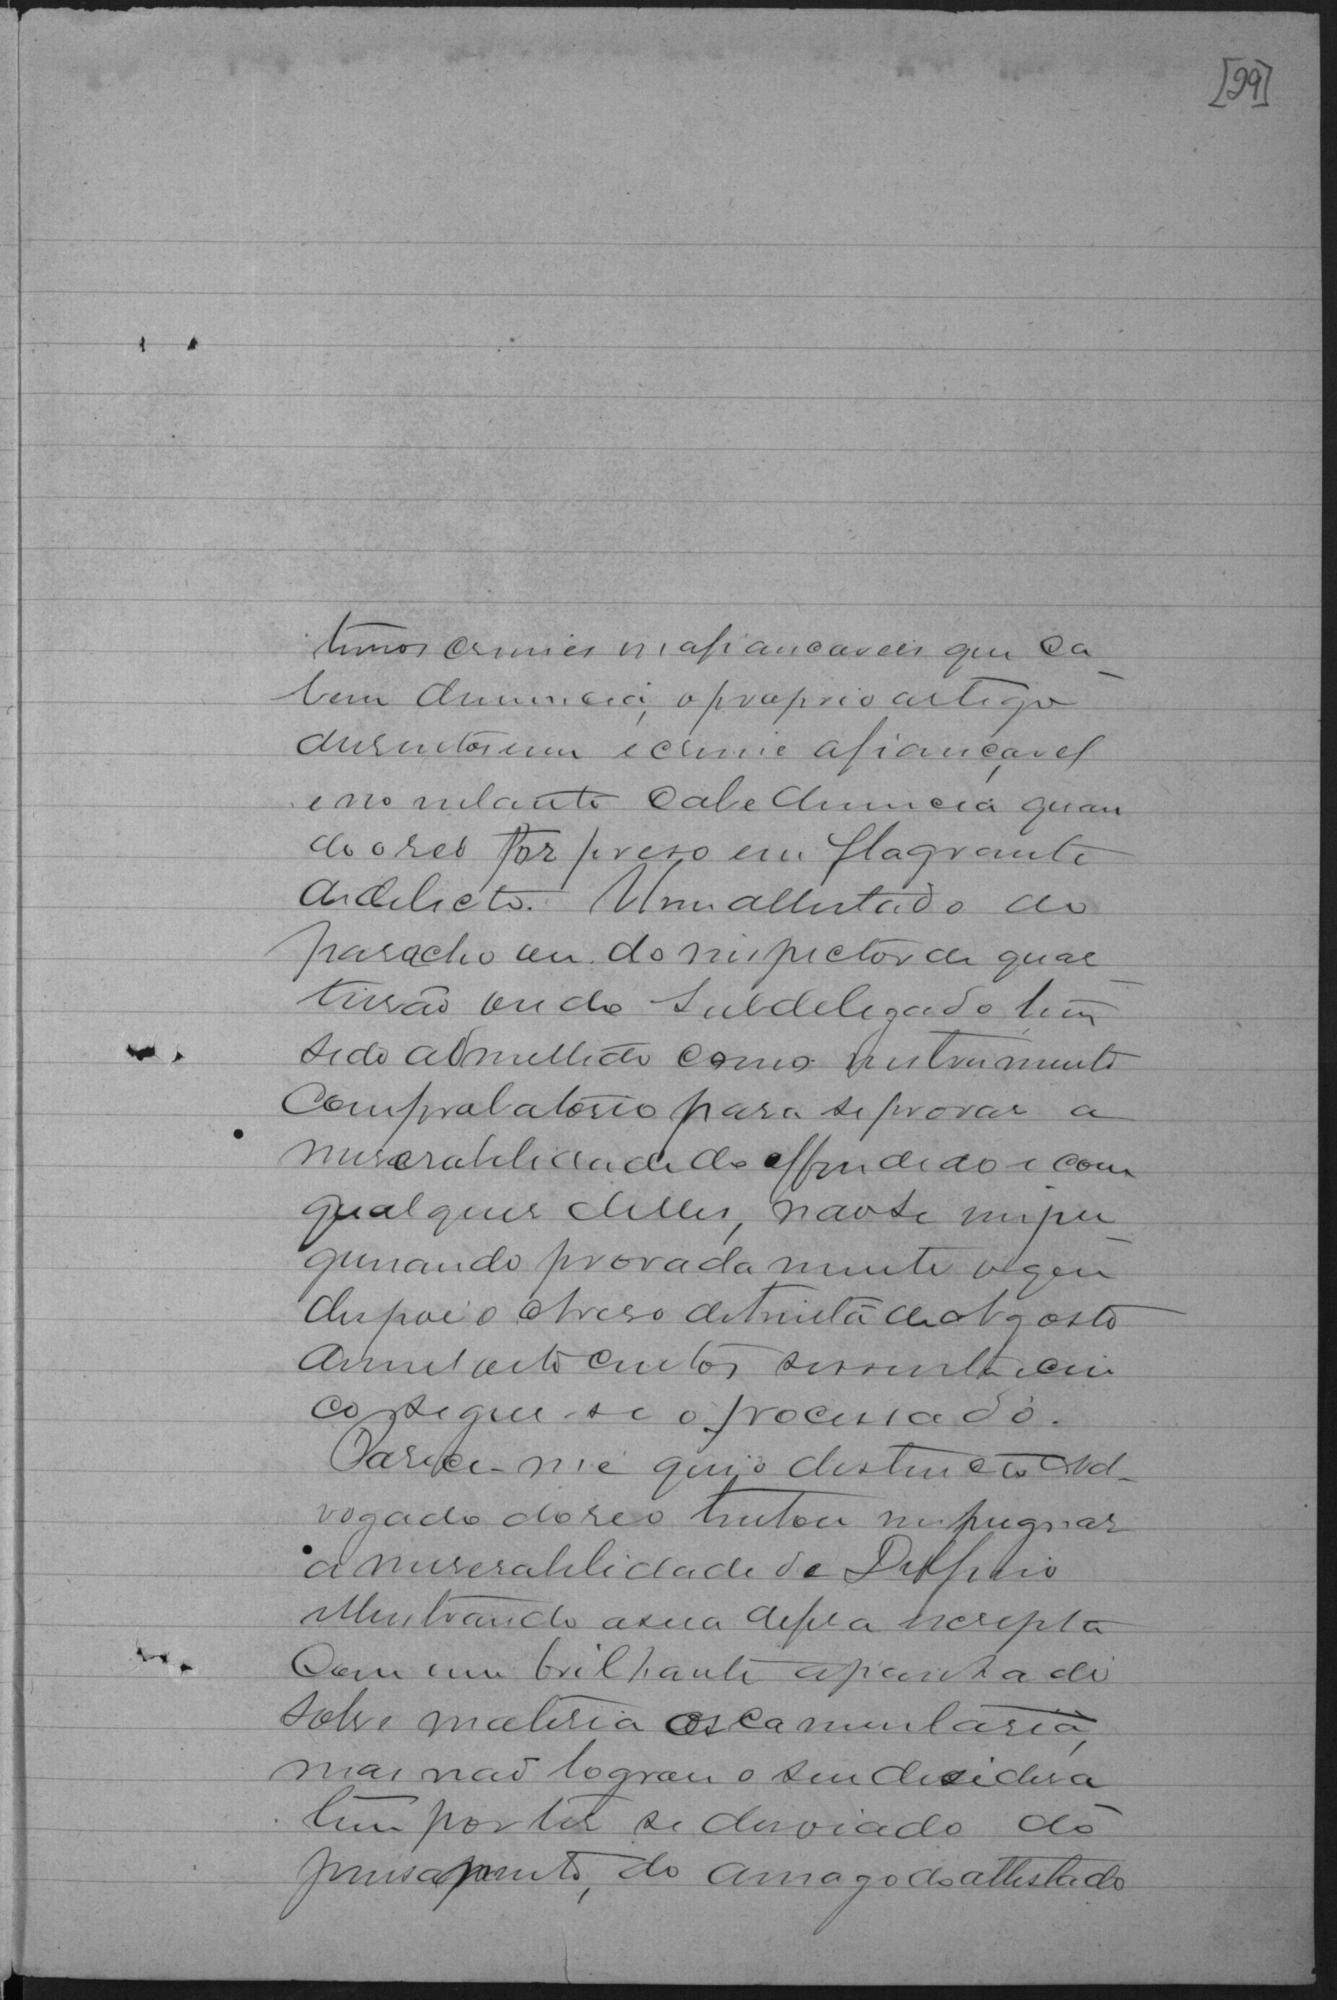 [29]
timos crimes inafiancaveis que ca-
bem denuncia, o proprio artigo
dusentos e um e crime afiançavel
e no entanto cabe denuncia quan
do o reo for preso em flagrante
de delicto. Um attestado do
parocho ou do inspector de quar-
teirão ou do subdelegado tem
sido admettido como instrumento
comprobatorio para se provar a
miserabilidade do offendido e com
qualquer delles, não se impu-
gunando provadamente o que
dispoe o Aviso de trinta de Agosto
de mil oito centos sessenta e cin
co segue-se o processado.
Parece-me que o distincto Ad-
vogado do reo tentou impugnar
a miserabilidade de Delfino
illustrando a sua defesa escripta
com um brilhante apanhado
sobre materia
mas não logrou o seu desidera
tum por ter se desviado do
pensamento, do amago do attestado